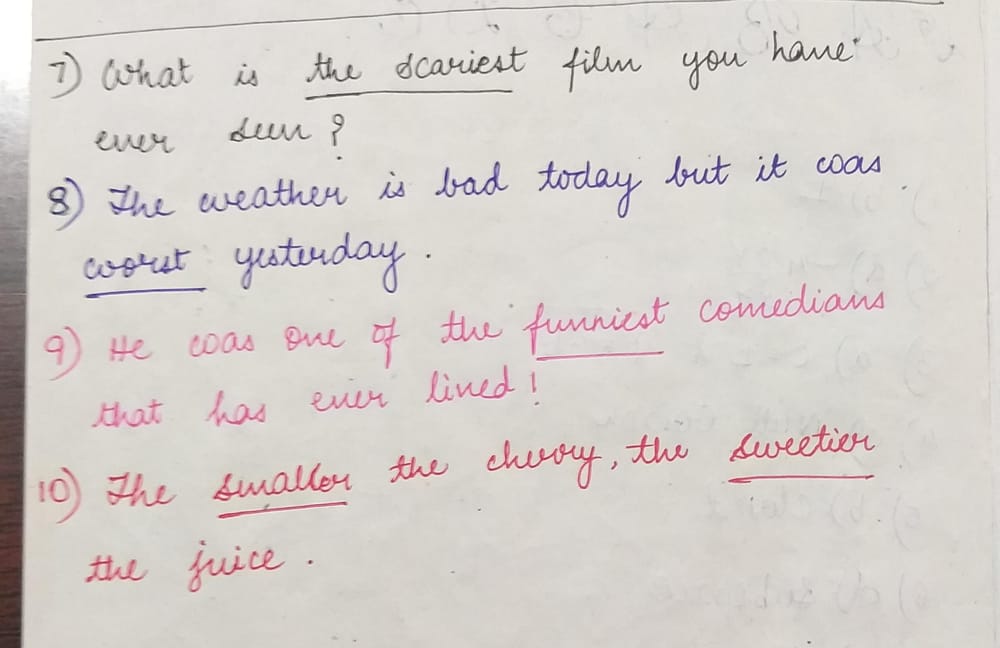 7) What is the scariest film you have
ever seen?
8) The weather is bad today but it was
worst yesterday.
9) He was one of the funniest comedians
that has ever lived!
10) The smaller the cherry, the sweetier
the juice.